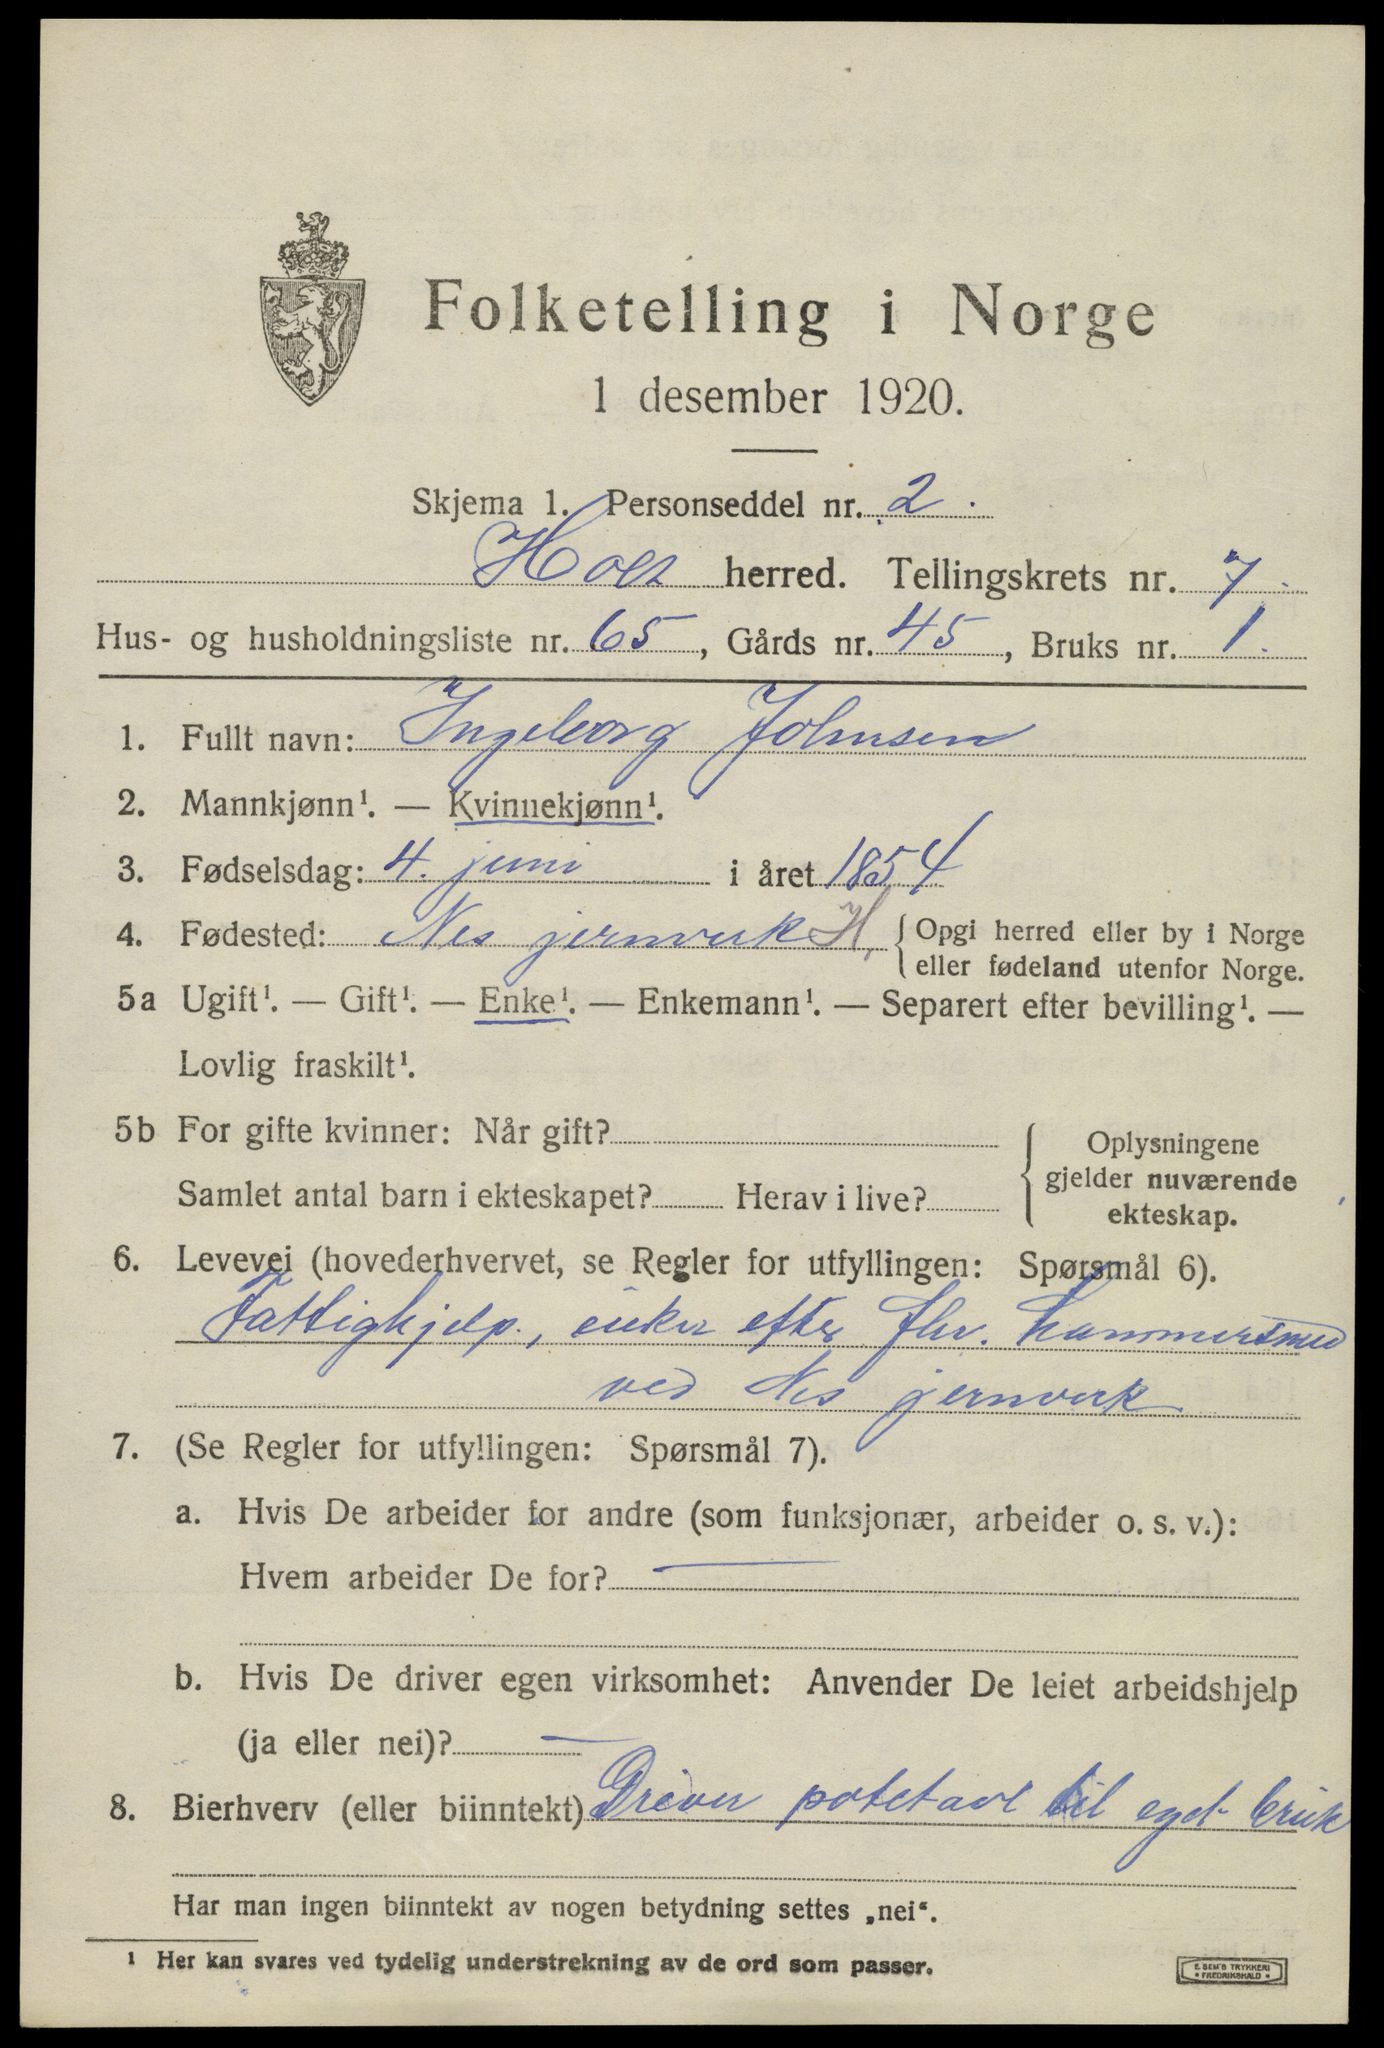 Folketelling i Norge
1 desember 1920.
Skjema 1. Personseddel nr. 2.
Holt herred. Tellingskrets nr. 7.
Hus- og husholdningsliste nr. 65, Gårds nr. 45, Bruks nr. 1.
1. Fullt navn: Ingeborg Johnsen
2. Mannkjønn¹. — Kvinnekjønn¹.
3. Fødselsdag: 4. juni i året 1854
4. Fødested: Nes jernverk H, { Opgi herred eller by i Norge
eller fødeland utenfor Norge.
5a Ugift¹. — Gift¹. — Enke¹. — Enkemann¹. — Separert efter bevilling¹. —
Lovlig fraskilt¹.
5b For gifte kvinner: Når gift?
Samlet antal barn i ekteskapet? Herav i live?
{ Oplysningene
gjelder nuværende
ekteskap.
6. Levevei (hovederhvervet, se Regler for utfyllingen: Spørsmål 6).
Fattighjelp, enke efter fhv. hammersmed
ved Nes jernverk
7. (Se Regler for utfyllingen: Spørsmål 7).
a. Hvis De arbeider for andre (som funksjonær, arbeider o. s. v.):
Hvem arbeider De for? —
b. Hvis De driver egen virksomhet: Anvender De leiet arbeidshjelp
(ja eller nei)? —
8. Bierhverv (eller biinntekt) Driver potetavl til eget bruk
Har man ingen biinntekt av nogen betydning settes „nei“.
¹ Her kan svares ved tydelig understrekning av de ord som passer.
E SEM'S TRYKKERI
* FREDRIKSHALD *